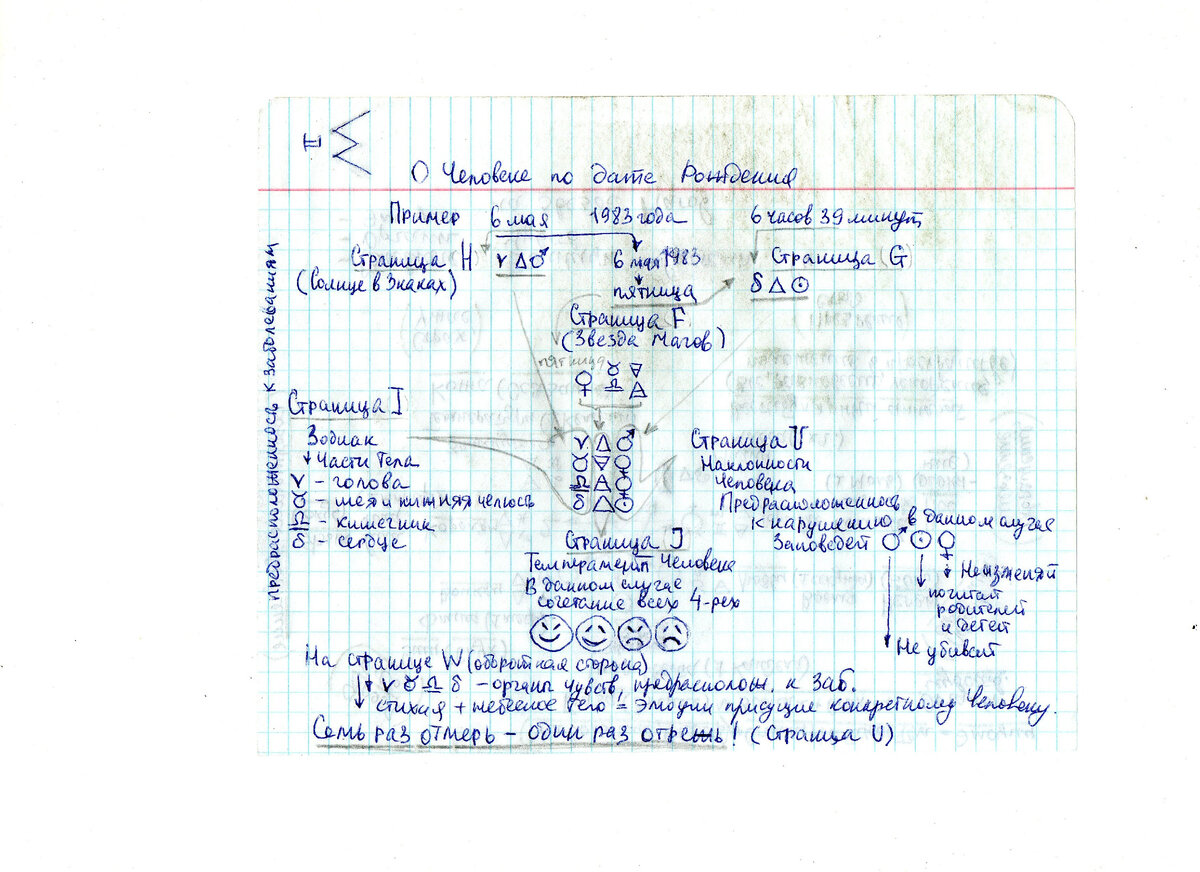 II
О Человеке по дате Рождения
Пример 6 мая 1983 года 6 часов 39 минут
Страница H ♈ △ ♂ 6 мая 1983 Страница G
(Солнце в Знаках) пятница ♌ △ ☉
Страница F
(Звезда Магов)
пятница
♀ ♉ ♎
ПРЕДРАСПОЛОЖЕННОСТЬ К ЗАБОЛЕВАНИЯМ
Страница I
Зодиак
↓ Части Тела
♈ - голова
♉ - шея и нижняя челюсть
♎ - кишечник
♌ - сердце
♈ △ ♂
♉ ▽ ♀
♎ ♀
♌ △ ☉
Страница U
Наклонности
Человека
Предрасположенность
к нарушению в данном случае
Заповедей ♂ ☉ ♀
Не изменяй
почитай
родителей
и детей
Не убивай
Страница J
Темперамент Человека
В данном случае
сочетание всех 4-рех
На странице W (оборотная сторона)
↓ ♈ ♉ ♎ ♌ - органы чувств, предраспопож. к заб.
↓ стихия + небесное тело = эмоции присущие конкретному Человеку.
Семь раз отмерь - один раз отрежь! (Страница U)